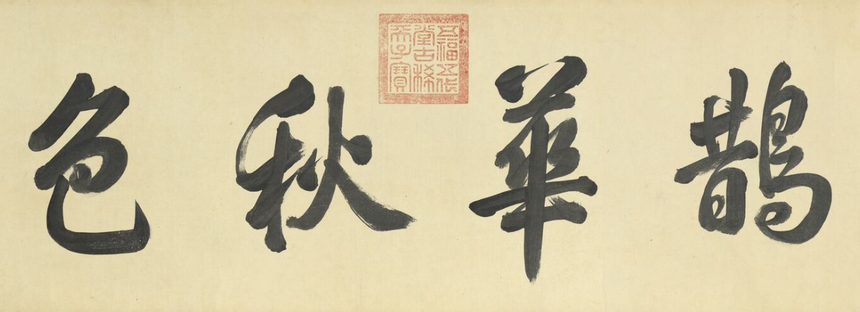 鵲華秋色
五福五代
堂古稀
天子寶